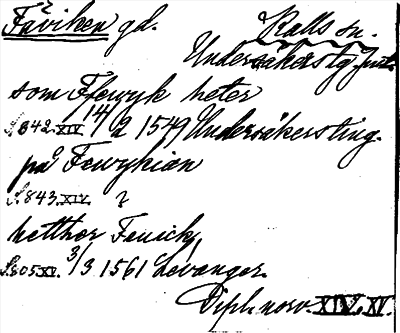 Fäviken gd. Kalls sn.
Undersåkers tg. Jmtl.
som Ffewyk heter
S. 842. XIV. 14/2 1549 Undersåkersting.
på Fewykian
S. 843. XIV. ?
hetther Feuick,
S. 205 XV. 3/3 1561 Levanger.
Dipl. norv. XIV, XV.